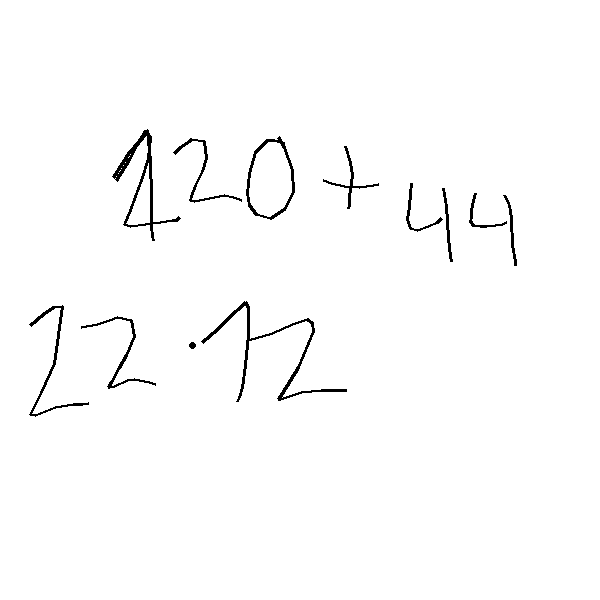 220+44
22·12